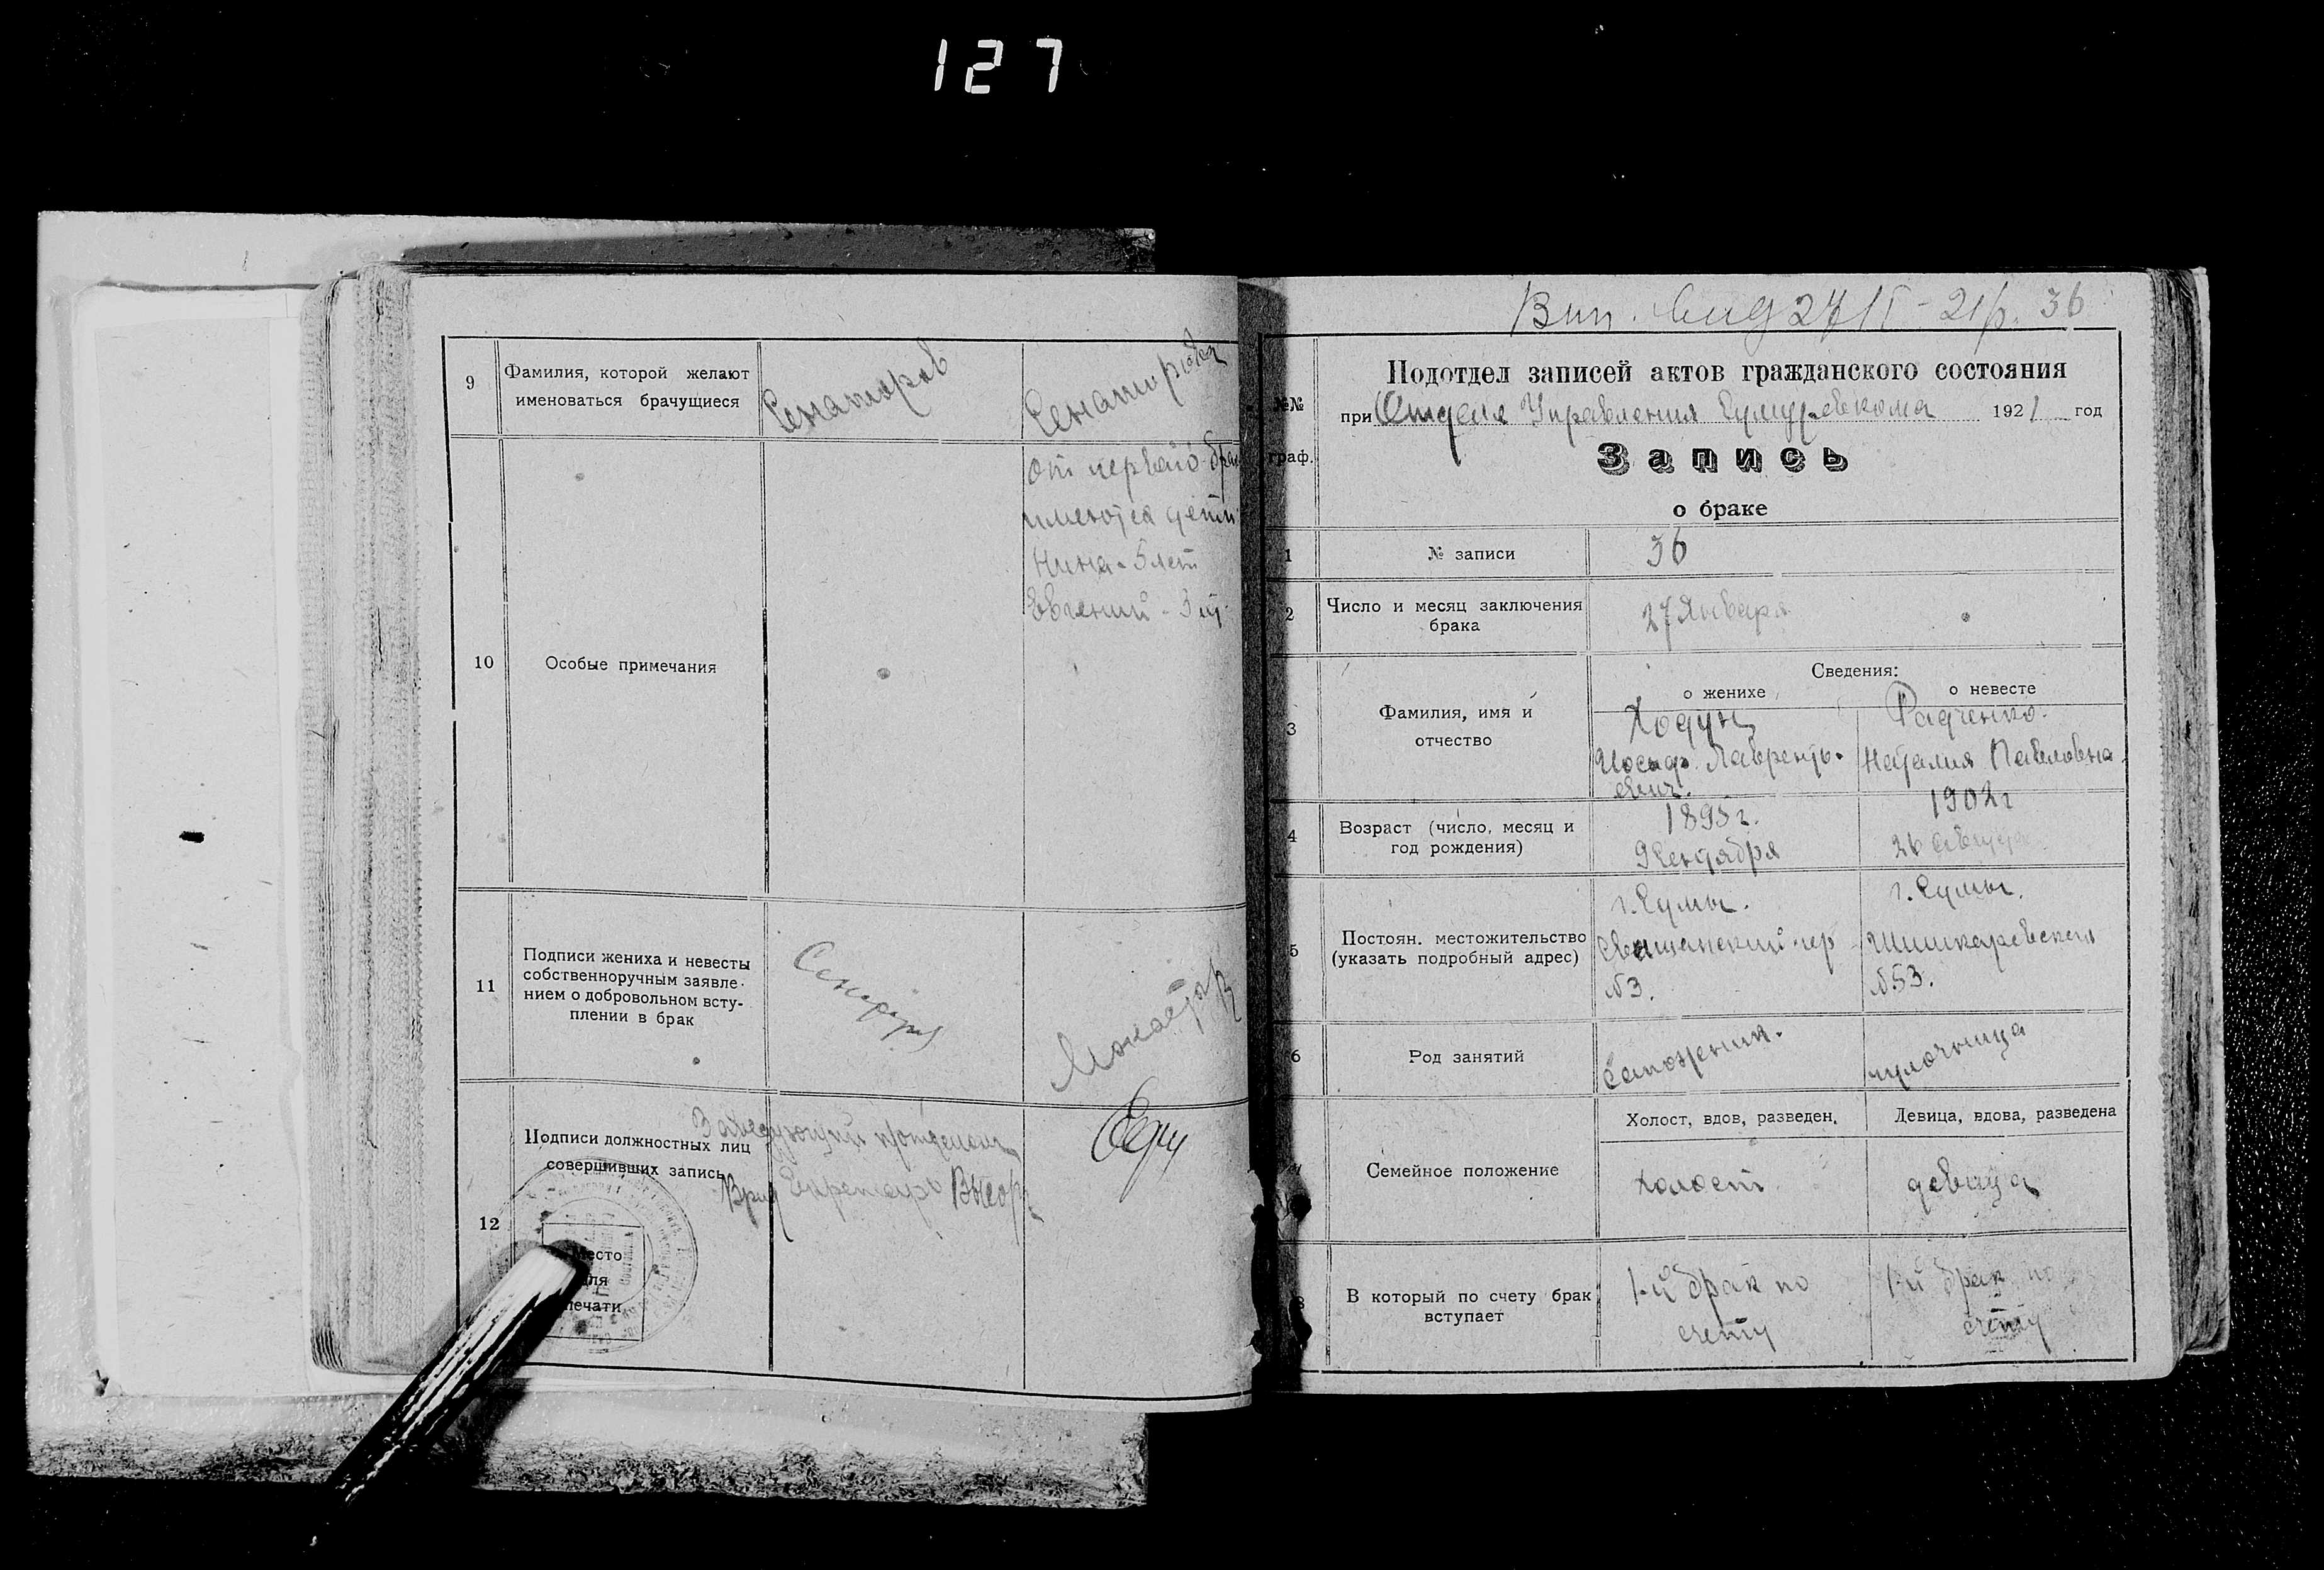 127
9
Фамилия, которой желают
именоваться брачущиеся
Сенаторов
Сенаторова
10
Особые примечания
От первого брак
имеются дети
Нина - 5 лет
Евгений - 3
11
Подписи жениха и невесты
собственноручным заявле-
нием о добровольном всту-
плении в брак
12
Подписи должностных лиц
совершивших запись
Заведующий п/отделом
Врид Секретарь
Место
для
печати
36
№№
граф.
Подотдел записей актов гражданского состояния
при Отделе Управления Сумуревкома 1921 год
Запись
о браке
1
№ записи
36
2
Число и месяц заключения
брака
27 Января
Сведения:
о женихе
о невесте
3
Фамилия, имя и
отчество
Ходун
Иосиф Лаврентье-
евич.
Радченко.
Наталия Павловна
4
Возраст (число, месяц и
год рождения)
1895 г.
9 Сентября
1902 г
26 Августа
5
Постоян. местожительство
(указать подробный адрес)
г. Сумы.
пер
№3.
г. Сумы.
Шишкаревская
№53.
6
Род занятий
Сапожник.
чулочница
Семейное положение
Холост, вдов, разведен,
Девица, вдова, разведена
холост
девица
8
В который по счету брак
вступает
1-й брак по
счету
1-й брак по
счету